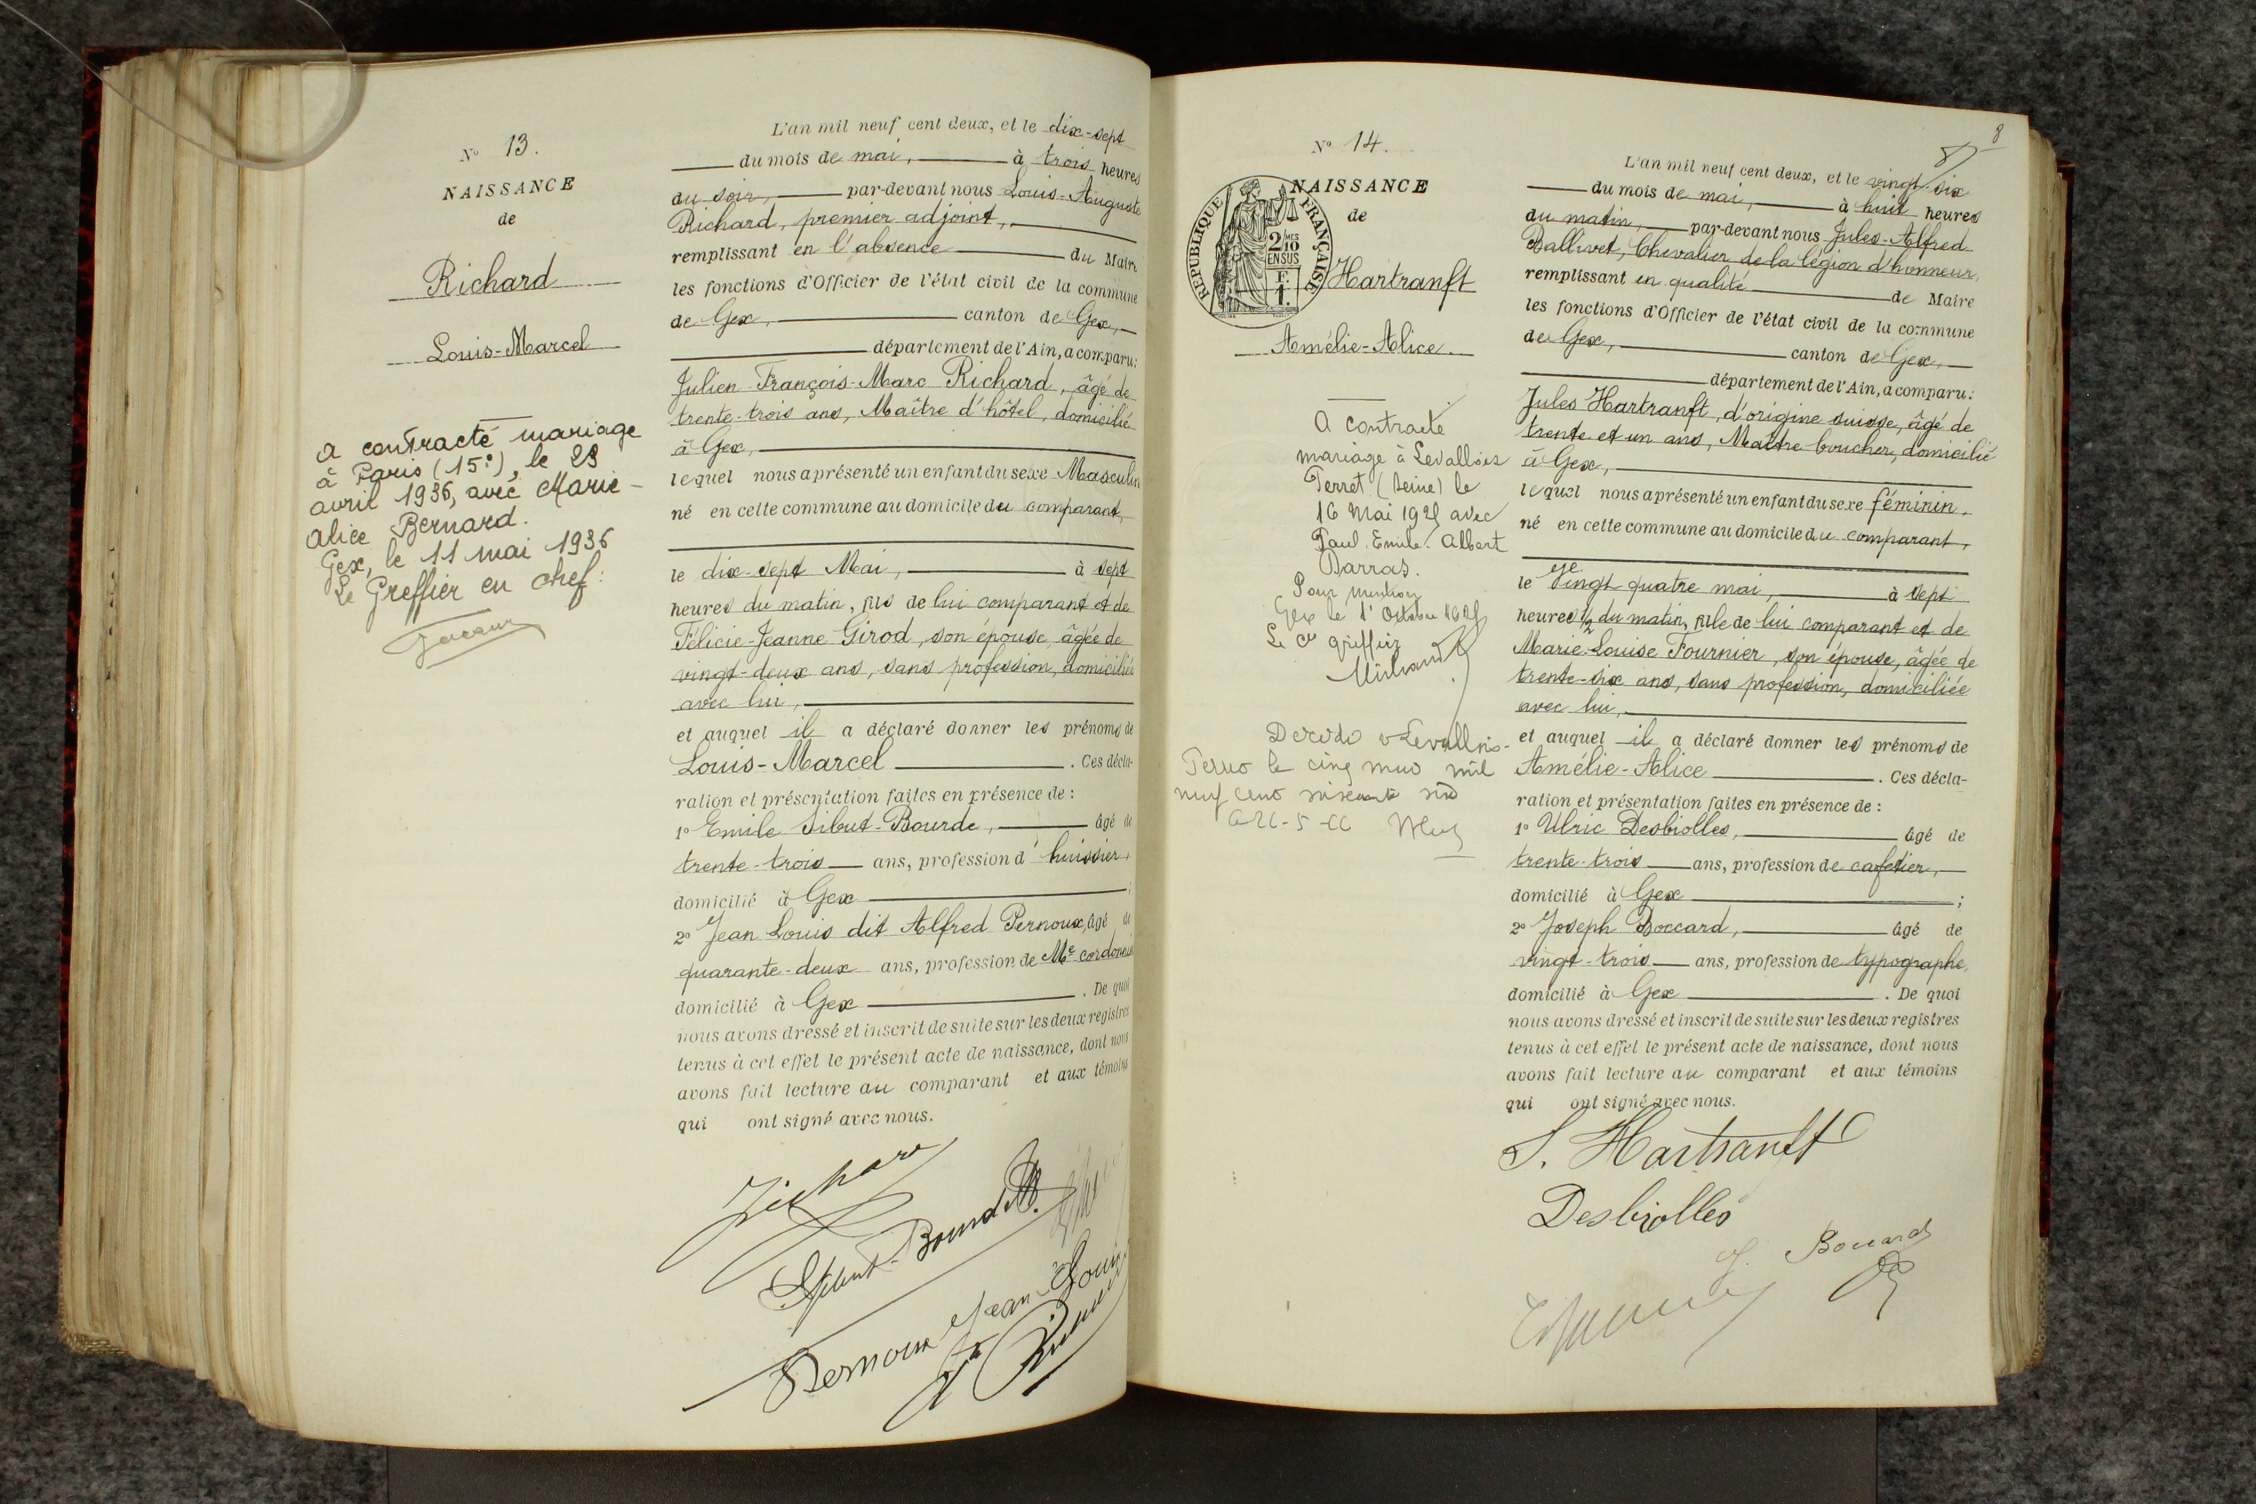 N° 13.
NAISSANCE
de
Richard
Louis-Marcel
a contracté mariage
à Paris (15e), le
avril 1936, avec Marie-
Alice Bernard.
Gex, le 11 mai 1936
Le Greffier en chef:
L'an mil neuf cent deux, et le dix-sept
du mois de mai, à trois heures
du soir, par-devant nous Louis-Auguste
Richard, premier adjoint,
remplissant en l'absence du Maire
les fonctions d'Officier de l'état civil de la commune
de Gex, canton de Gex,
département de l'Ain, a comparu:
Julien-François-Marc Richard, âgé de
trente-trois ans, Maître d'hôtel, domicilié
à Gex,
lequel nous a présenté un enfant du sexe Masculin
né en cette commune au domicile du comparant,
le dix-sept Mai, à sept
heures du matin, fils de lui comparant et de
Félicie-Jeanne Girod, son épouse, âgée de
vingt-deux ans, sans profession, domiciliée
avec lui,
et auquel il a déclaré donner les prénoms de
Louis-Marcel . Ces décla-
ration et présentation faites en présence de :
1° Emile Sibut-Bourde, âgé de
trente-trois ans, profession d'huissier,
domicilié à Gex ;
2° Jean Louis dit Alfred Pernoux, âgé de
quarante-deux ans, profession de Me cordonnier
domicilié à Gex . De quoi
nous avons dressé et inscrit de suite sur les deux registres
tenus à cet effet le présent acte de naissance, dont nous
avons fait lecture au comparant et aux témoins
qui ont signé avec nous.
Richard
Sibut-Bourde
Pernoux Jean Louis
8
N° 14.
NAISSANCE
de
RÉPUBLIQUE FRANÇAISE
2/10 MES
EN SUS
F.
1.
Hartranft
Amélie-Alice.
A contracté
mariage à Levallois
Perret (Seine) le
16 Mai 1925 avec
Paul. Emile. Albert
Barras.
Pour mention
Gex le 1er Octobre 1925
Le Cis greffier
Décédée à Levallois-
Perret le cinq mars mil
neuf cent soixante six
L'an mil neuf cent deux, et le vingt-six
du mois de mai, à huit heures
du matin, par-devant nous Jules-Alfred
Ballivet, Chevalier de la légion d'honneur,
remplissant en qualité de Maire
les fonctions d'Officier de l'état civil de la commune
de Gex, canton de Gex,
département de l'Ain, a comparu:
Jules Hartranft, d'origine suisse, âgé de
trente et un ans, Maître boucher, domicilié
à Gex,
lequel nous a présenté un enfant du sexe féminin,
né en cette commune au domicile du comparant,
le vingt quatre mai, à sept
heures 1/2 du matin, fille de lui comparant et de
Marie-Louise Fournier, son épouse, âgée de
trente-six ans, sans profession, domiciliée
avec lui,
et auquel il a déclaré donner les prénoms de
Amélie-Alice . Ces décla-
ration et présentation faites en présence de :
1° Ulric Desbiolles, âgé de
trente-trois ans, profession de cafetier,
domicilié à Gex ;
2° Joseph Boccard, âgé de
vingt-trois ans, profession de typographe,
domicilié à Gex . De quoi
nous avons dressé et inscrit de suite sur les deux registres
tenus à cet effet le présent acte de naissance, dont nous
avons fait lecture au comparant et aux témoins
qui ont signé avec nous.
Hartranft
Desbiolles
J. Boccard